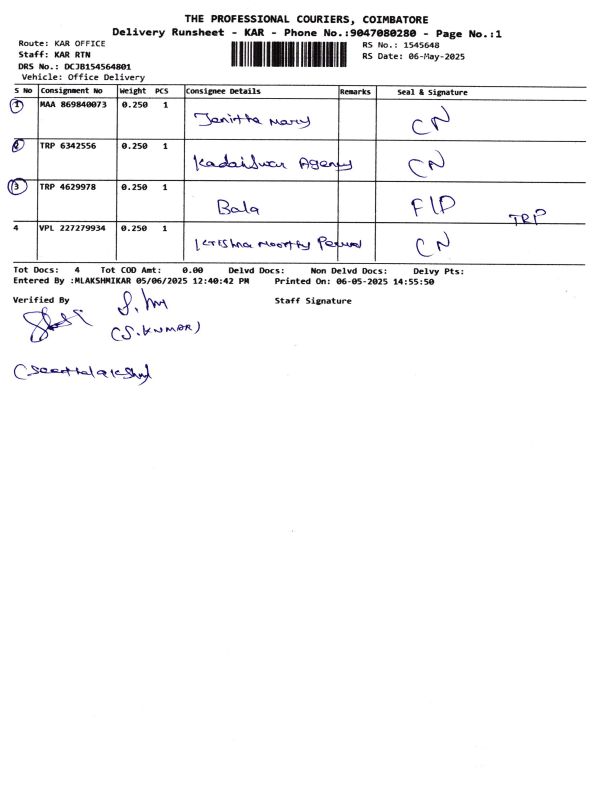 THE PROFESSIONAL COURIERS, COIMBATORE
Delivery Runsheet - KAR - Phone No.:9047080280 - Page No.:1
Route: KAR OFFICE
Staff: KAR RTN
DRS No.: DCJB154564801
Vehicle: Office Delivery
RS No.: 1545648
RS Date: 06-May-2025
S No Consignment No Weight PCS Consignee Details Remarks Seal & Signature
1 MAA 869840073 0.250 1 Jenitta Mary CN
2 TRP 6342556 0.250 1 Agency CN
3 TRP 4629978 0.250 1 Bala F/D TRP
4 VPL 227279934 0.250 1 Krishna Moorthy CN
Tot Docs: 4 Tot COD Amt: 0.00 Delvd Docs: Non Delvd Docs: Delvy Pts:
Entered By :MLAKSHMIKAR 05/06/2025 12:40:42 PM Printed On: 06-05-2025 14:55:50
Verified By Staff Signature
(S.KUMAR)